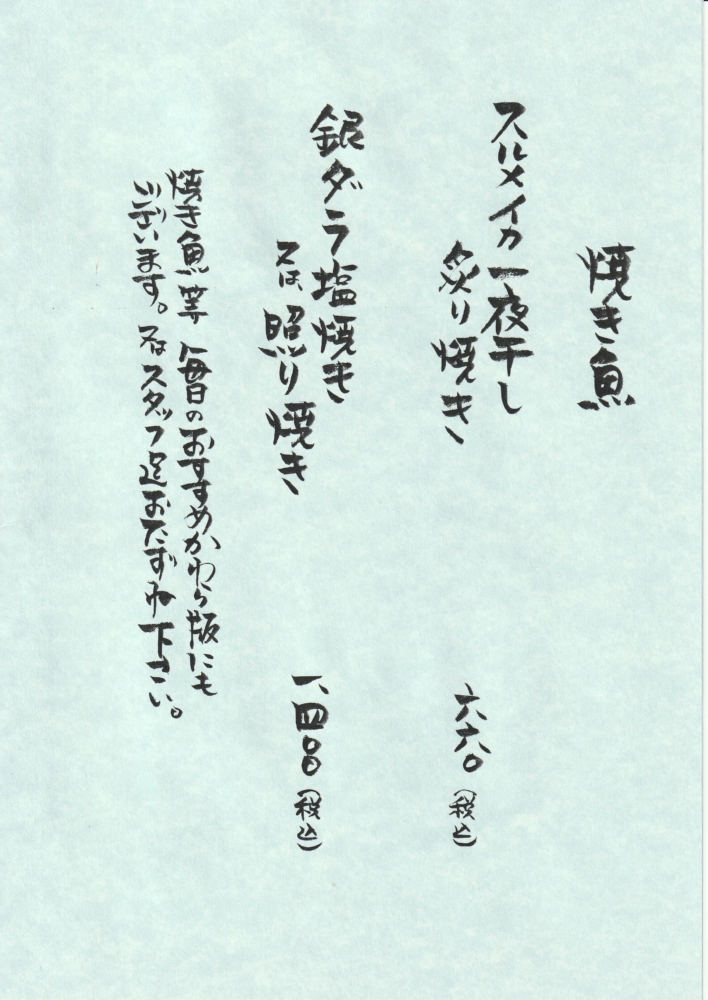 焼き魚
スルメイカ一夜干し
炙り焼き
六六〇(税込)
銀ダラ塩焼き
又は照り焼き
一、四〇〇(税込)
焼き魚等 毎日のおすすめかわら版にも
ございます。又はスタッフ迄おたずね下さい。